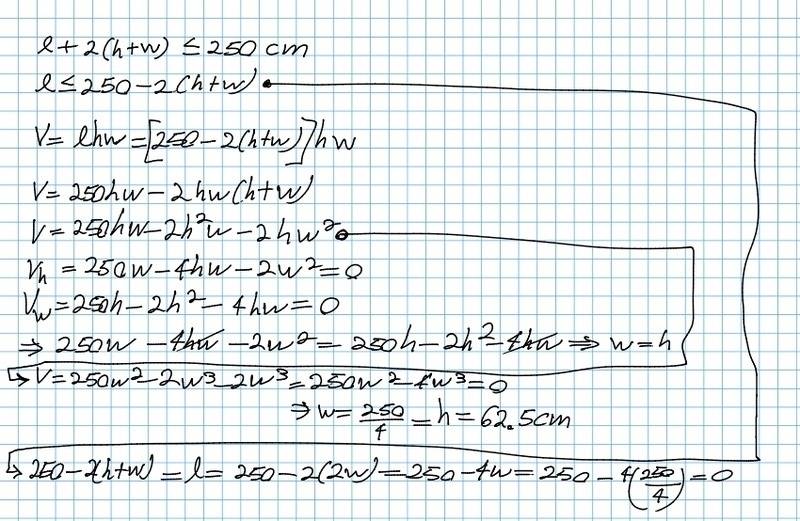 l + 2(h+w) ≤ 250 cm
l ≤ 250 - 2(h+w)
V = lhw = [250 - 2(h+w)]hw
V = 250hw - 2hw(h+w)
V = 250hw - 2h²w - 2hw²
V_h = 250w - 4hw - 2w² = 0
V_w = 250h - 2h² - 4hw = 0
⇒ 250w - 4hw - 2w² = 250h - 2h² - 4hw ⇒ w = h
V = 250w² - 2w³ - 2w³ = 250w² - 4w³ = 0
⇒ w = 250/4 = h = 62.5cm
250 - 2(h+w) = l = 250 - 2(2w) = 250 - 4w = 250 - 4(250/4) = 0